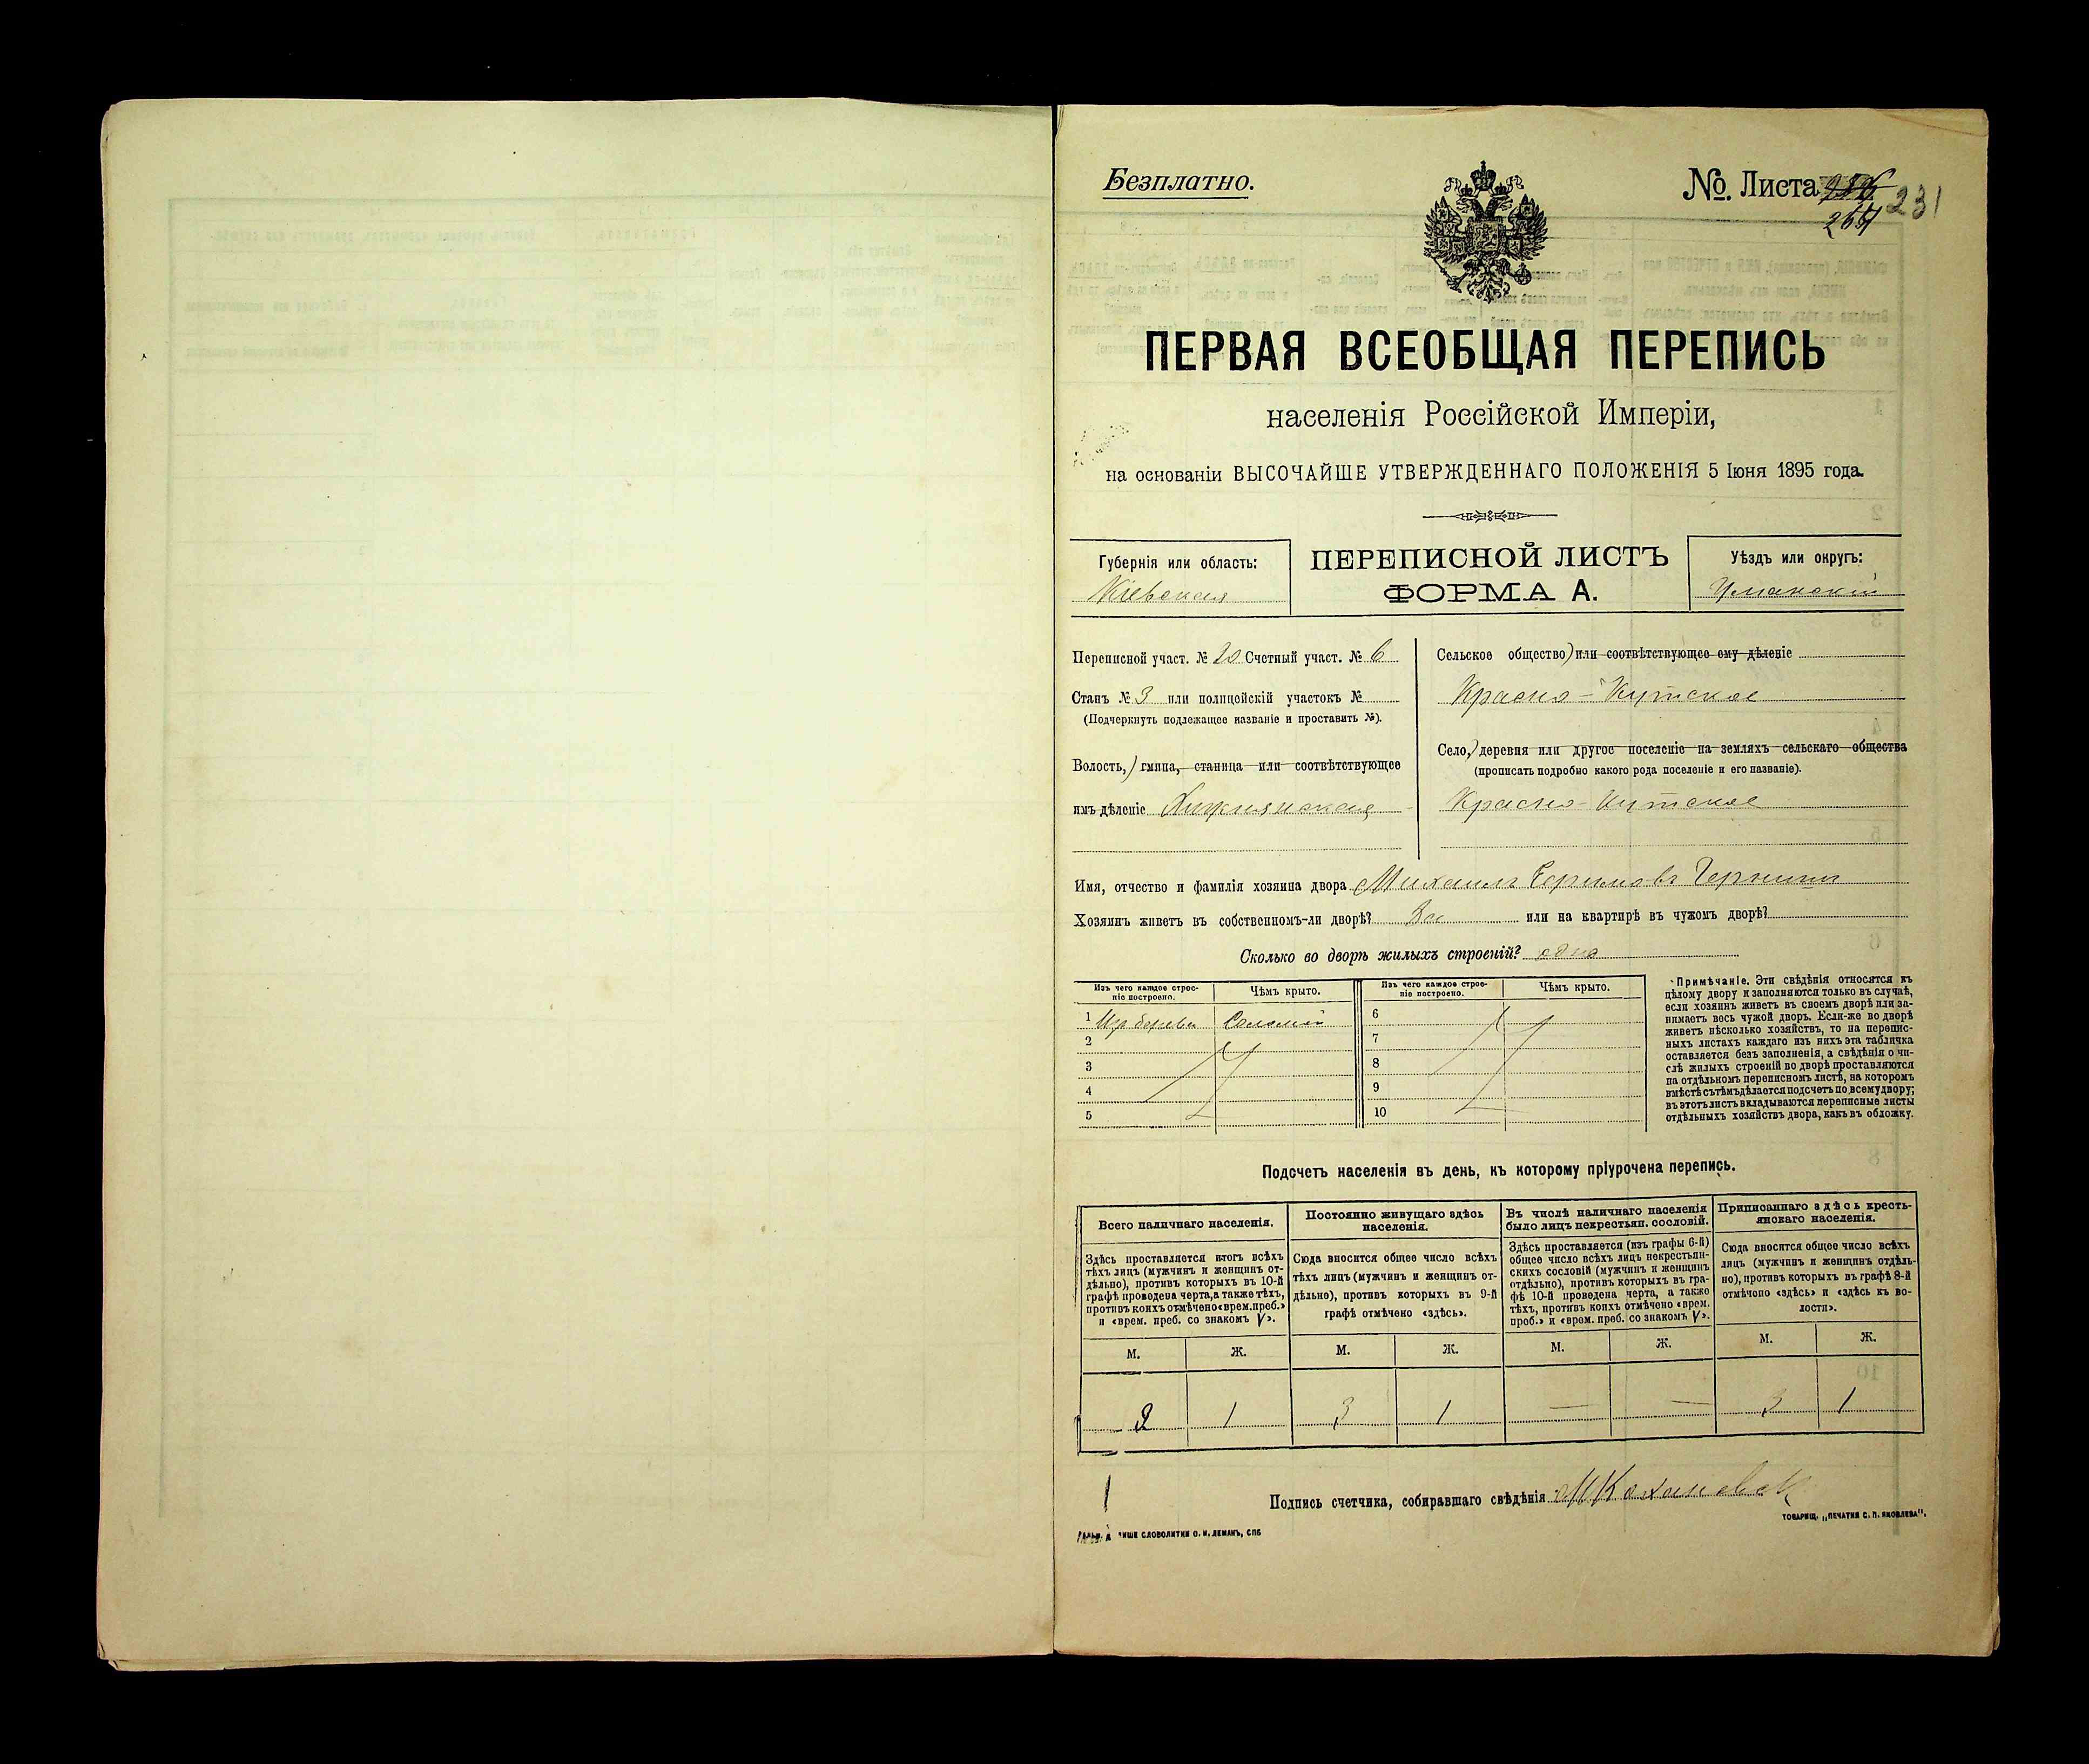 Безплатно.
№. Листа 231
ПЕРВАЯ ВСЕОБЩАЯ ПЕРЕПИСЬ
населенія Россійской Имперіи,
на основаніи ВЫСОЧАЙШЕ УТВЕРЖДЕННАГО ПОЛОЖЕНІЯ 5 Іюня 1895 года.
Губернія или область:
Кіевская
ПЕРЕПИСНОЙ ЛИСТЪ
ФОРМА А.
Уѣздъ или округъ:
Уманскій
Переписной участ. № 20 Счетный участ. № 6
Станъ № 3 или полицейскій участокъ №
(Подчеркнуть подлежащее названіе и проставить №).
Волость,) гмина, станица или соотвѣтствующее
имъ дѣленіе
Сельское общество) или соотвѣтствующее ему дѣленіе
Красно-Кутское
Село,) деревня или другое поселеніе на земляхъ сельскаго общества
(прописать подробно какого рода поселеніе и его названіе).
Красно-Кутское
Имя, отчество и фамилія хозяина двора Михаилъ
Хозяинъ живетъ въ собственномъ-ли дворѣ? или на квартирѣ въ чужомъ дворѣ?
Сколько во дворѣ жилыхъ строеній? одно
Изъ чего каждое строе-
ніе построено.
Чѣмъ крыто.
1 Соломой
2
3
4
5
Изъ чего каждое строе-
ніе построено.
Чѣмъ крыто.
6
7
8
9
10
Примѣчаніе. Эти свѣдѣнія относятся къ
цѣлому двору и заполняются только въ случаѣ,
если хозяинъ живетъ въ своемъ дворѣ или за-
нимаетъ весь чужой дворъ. Если-же во дворѣ
живетъ нѣсколько хозяйствъ, то на перепис-
ныхъ листахъ каждаго изъ нихъ эта табличка
оставляется безъ заполненія, а свѣдѣнія о чи-
слѣ жилыхъ строеній во дворѣ проставляются
на отдѣльномъ переписномъ листѣ, на которомъ
вмѣстѣ съ тѣмъ дѣлается подсчетъ по всему двору;
въ этотъ листъ вкладываются переписные листы
отдѣльныхъ хозяйствъ двора, какъ въ обложку.
Подсчетъ населенія въ день, къ которому пріурочена перепись.
Всего наличнаго населенія.
Здѣсь проставляется итогъ всѣхъ
тѣхъ лицъ (мужчинъ и женщинъ от-
дѣльно), противъ которыхъ въ 10-й
графѣ проведена черта, а также тѣхъ,
противъ коихъ отмѣчено «врем. преб.»
и «врем. преб. со знакомъ V».
М. Ж.
2 1
Постоянно живущаго здѣсь
населенія.
Сюда вносится общее число всѣхъ
тѣхъ лицъ (мужчинъ и женщинъ от-
дѣльно), противъ которыхъ въ 9-й
графѣ отмѣчено «здѣсь».
М. Ж.
3 1
Въ числѣ наличнаго населенія
было лицъ некрестьян. сословій.
Здѣсь проставляется (изъ графы 6-й)
общее число всѣхъ лицъ некрестьян-
скихъ сословій (мужчинъ и женщинъ
отдѣльно), противъ которыхъ въ гра-
фѣ 10-й проведена черта, а также
тѣхъ, противъ коихъ отмѣчено «врем.
преб.» и «врем. преб. со знакомъ V».
М. Ж.
— —
Приписаннаго здѣсь кресть-
янскаго населенія.
Сюда вносится общее число всѣхъ
лицъ (мужчинъ и женщинъ отдѣль-
но), противъ которыхъ въ графѣ 8-й
отмѣчено «здѣсь» и «здѣсь въ во-
лости».
М. Ж.
3 1
Подпись счетчика, собиравшаго свѣдѣнія
СЛОВОЛИТНИ О. И. ЛЕМАНЪ, СПБ
ТОВАРИЩ. „ПЕЧАТНЯ С. П. ЯКОВЛЕВА".